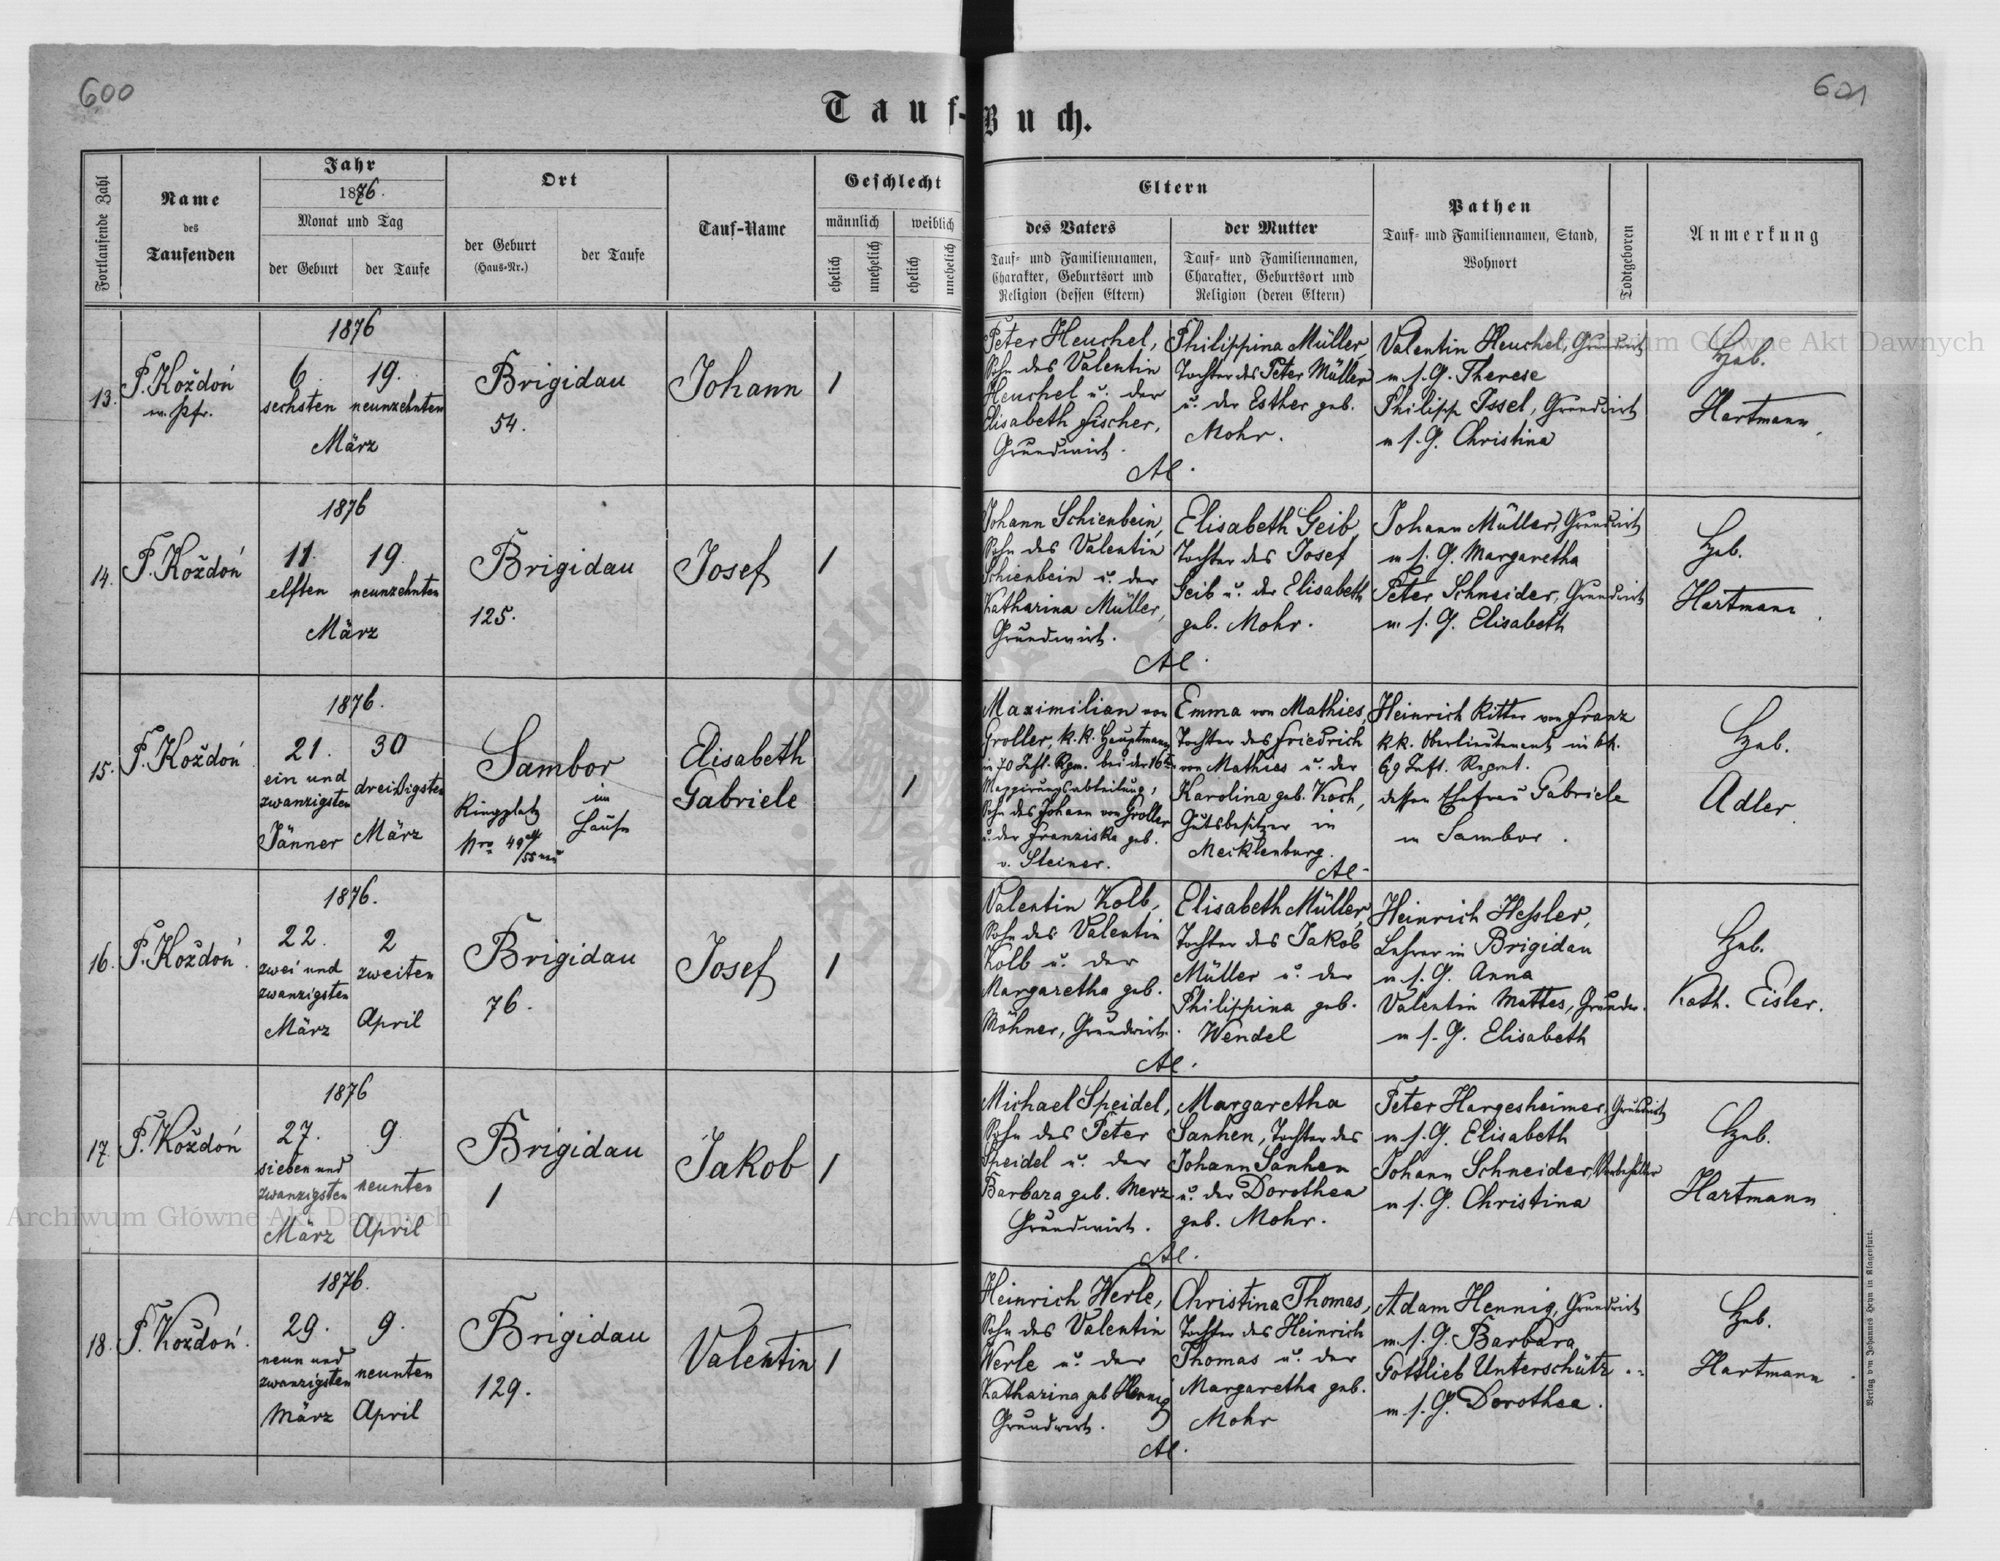 600
601
Tauf-Buch.
Fortlaufende Zahl
Name
des
Taufenden
Jahr
1876.
Monat und Tag
der Geburt
der Taufe
Ort
der Geburt
(Haus-Nr.)
der Taufe
Tauf-Name
Geschlecht
männlich
weiblich
ehelich
unehelich
ehelich
unehelich
Eltern
des Vaters
Tauf- und Familiennamen,
Charakter, Geburtsort und
Religion (dessen Eltern)
der Mutter
Tauf- und Familiennamen,
Charakter, Geburtsort und
Religion (deren Eltern)
Pathen
Tauf- und Familiennamen, Stand,
Wohnort
Todtgeboren
Anmerkung
13.
P. Koždoń
m. Pfr.
1876
6.
sechsten
19.
neunzehnten
März
Brigidau
54.
Johann
1
Peter Heuchel,
Sohn des Valentin
Heuchel u. der
Elisabeth Fischer,
Grundwirt.
Philippina Müller,
Tochter des Peter Müller
u. der Esther geb.
Mohr.
Al.
Valentin Heuchel, Grundwirt
u. s. G. Therese
Philipp Issel, Grundwirt
u. s. G. Christina
Heb.
Hartmann.
14.
P. Koždoń
1876
11.
elften
19.
neunzehnten
März
Brigidau
125.
Josef
1
Johann Schienbein,
Sohn des Valentin
Schienbein u. der
Katharina Müller,
Grundwirt.
Elisabeth Geib,
Tochter des Josef
Geib u. der Elisabeth
geb. Mohr.
Al.
Johann Müller, Grundwirt
u. s. G. Margaretha
Peter Schneider, Grundwirt
u. s. G. Elisabeth
Heb.
Hartmann.
15.
P. Koždoń
1876.
21.
ein und
zwanzigsten
Jänner
30
dreißigsten
März
Sambor
Ringplatz
Nro 49 alt
/55 neu
im
Hause
Elisabeth
Gabriele
1
Maximilian von
Groller, k.k. Hauptmann
in 70 Inft. Rgm. bei der 16ten
Mappirungsabteilung,
Sohn des Johann von Groller
u. der Franziska geb.
v. Steiner.
Emma von Mathies,
Tochter des Friedrich
von Mathies u. der
Karolina geb. Koch,
Gutsbesitzer in
Mecklenburg.
Al.
Heinrich Ritter von Franz
k.k. Oberlieutenant im kk.
69 Inft. Regmt.
dessen Ehefrau Gabriele
in Sambor.
Heb.
Adler.
16.
P. Koždoń.
1876.
22.
zwei und
zwanzigsten
März
2
zweiten
April
Brigidau
76.
Josef
1
Valentin Kolb,
Sohn des Valentin
Kolb u. der
Margaretha geb.
Möhner, Grundwirt.
Elisabeth Müller,
Tochter des Jakob
Müller u. der
Philippina geb.
Wendel
Al.
Heinrich Heßler,
Lehrer in Brigidau
u. s. G. Anna
Valentin Mattes, Grundw.
u. s. G. Elisabeth
Heb.
Kath. Eisler.
17.
P. Koždoń
1876
27.
sieben und
zwanzigsten
März
9
neunten
April
Brigidau
1
Jakob
1
Michael Speidel,
Sohn des Peter
Speidel u. der
Barbara geb. Merz
Grundwirt.
Margaretha
Sanhen, Tochter des
Johann Sanhen
u. der Dorothea
geb. Mohr.
Al.
Peter Hargesheimer, Grundwirt
u. s. G. Elisabeth
Johann Schneider,
u. s. G. Christina
Heb.
Hartmann
18.
P. Koždoń.
1876.
29.
neun und
zwanzigsten
März
9.
neunten
April
Brigidau
129.
Valentin
1
Heinrich Werle,
Sohn des Valentin
Werle u. der
Katharina geb. Hennig
Grundwirt.
Christina Thomas,
Tochter des Heinrich
Thomas u. der
Margaretha geb.
Mohr
Al.
Adam Hennig, Grundwirt
u. s. G. Barbara
Gottlieb Unterschütz "
u. s. G. Dorothea.
Heb.
Hartmann.
Verlag von Johannes Heyn in Klagenfurt.
Archiwum Główne Akt Dawnych
Archiwum Główne Akt Dawnych